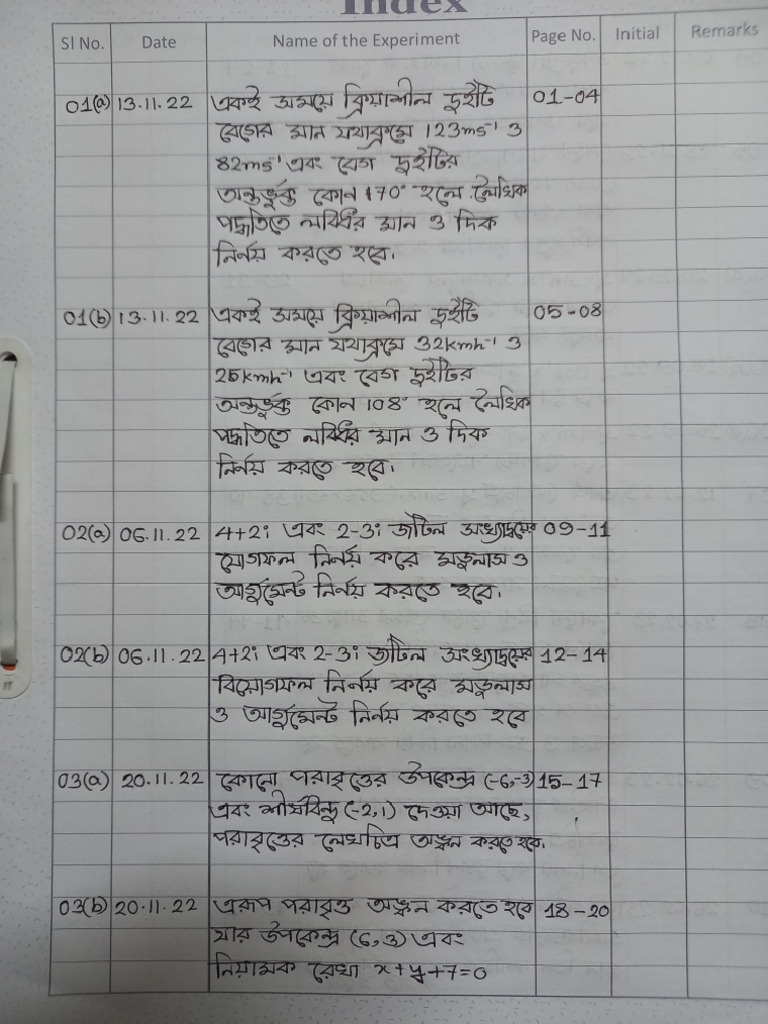 Index
Sl No. Date Name of the Experiment Page No. Initial Remarks
01(a) 13.11.22 একই সময়ে ক্রিয়াশীল দুইটি 01-04
বেগের মান যথাক্রমে 123ms⁻¹ ও
82ms⁻¹ এবং বেগ দুইটির
অন্তর্ভুক্ত কোন 170° হলে লৈখিক
পদ্ধতিতে লব্ধির মান ও দিক
নির্ণয় করতে হবে।
01(b) 13.11.22 একই সময়ে ক্রিয়াশীল দুইটি 05-08
বেগের মান যথাক্রমে 32kmh⁻¹ ও
25kmh⁻¹ এবং বেগ দুইটির
অন্তর্ভুক্ত কোন 108° হলে লৈখিক
পদ্ধতিতে লব্ধির মান ও দিক
নির্ণয় করতে হবে।
02(a) 06.11.22 4+2i এবং 2-3i জটিল সংখ্যাদ্বয়ের 09-11
যোগফল নির্ণয় করে মডুলাস ও
আর্গুমেন্ট নির্ণয় করতে হবে।
02(b) 06.11.22 4+2i এবং 2-3i জটিল সংখ্যাদ্বয়ের 12-14
বিয়োগফল নির্ণয় করে মডুলাস
ও আর্গুমেন্ট নির্ণয় করতে হবে
03(a) 20.11.22 কোনো পরাবৃত্তের উপকেন্দ্র (-6,-3) 15-17
এবং শীর্ষবিন্দু (-2,1) দেওয়া আছে,
পরাবৃত্তের লেখচিত্র অঙ্কন করতে হবে।
03(b) 20.11.22 এরূপ পরাবৃত্ত অঙ্কন করতে হবে 18-20
যার উপকেন্দ্র (6,3) এবং
নিয়ামক রেখা x+y+7=0